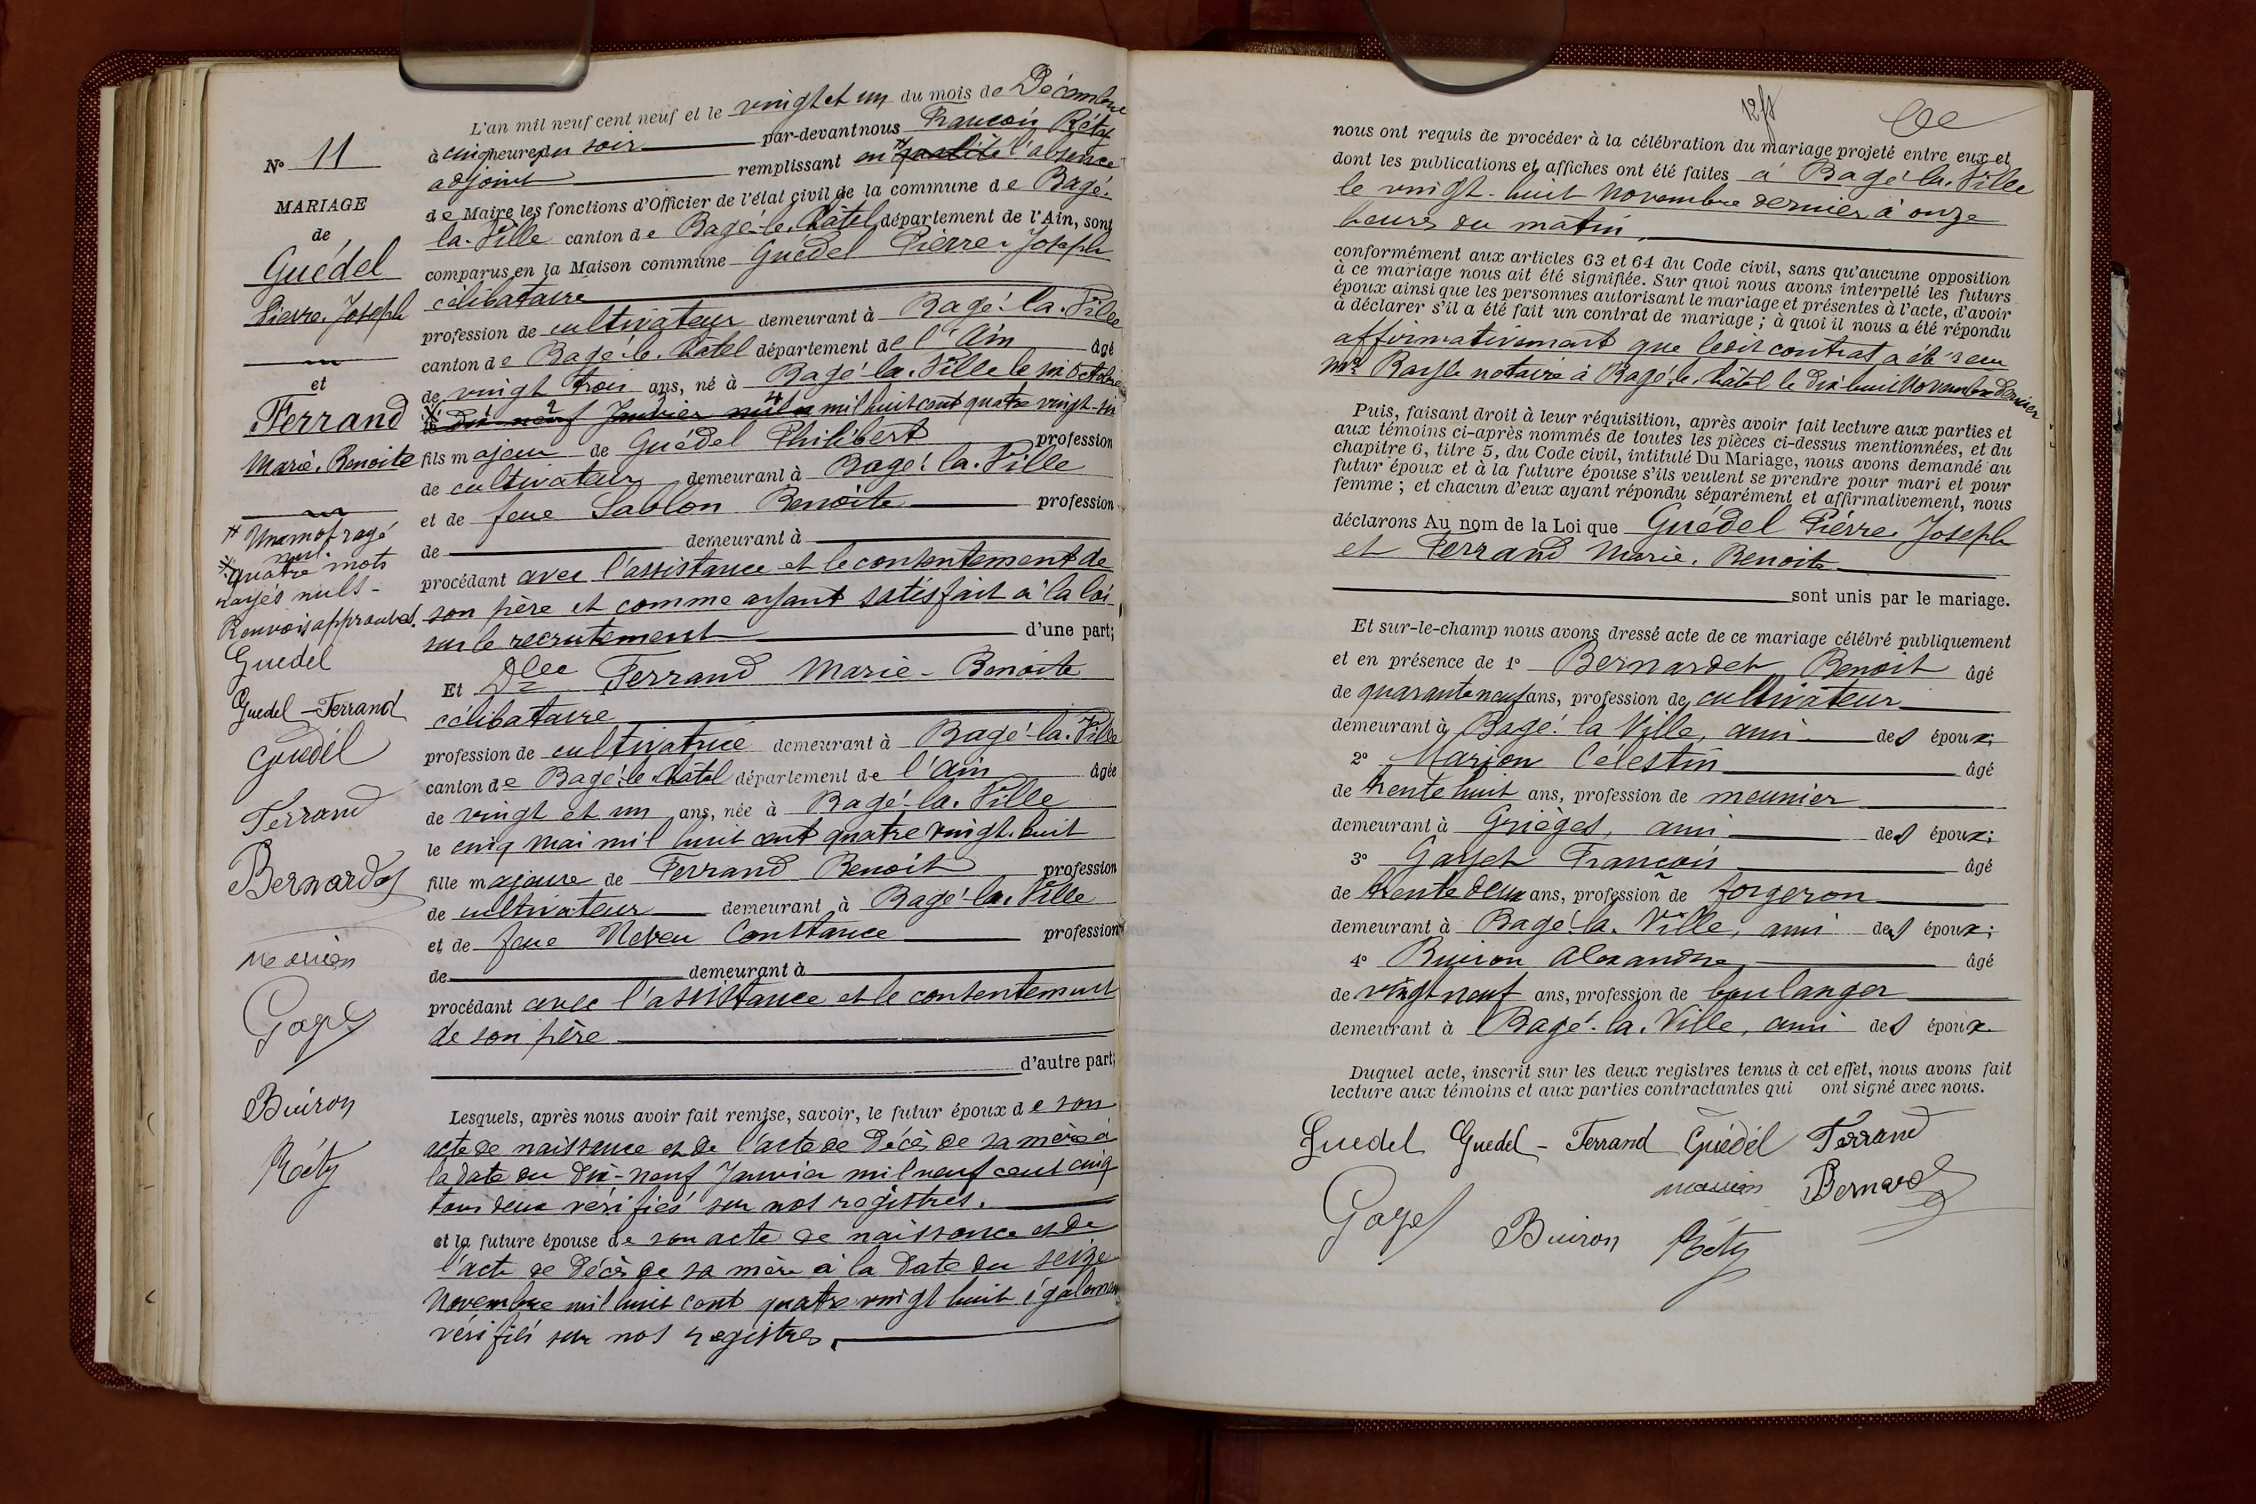 N° 11
MARIAGE
de
Guédel
Pierre. Joseph
et
Ferrand
Marie. Benoite
Un mot rayé
nul.
quatre mots
rayés nuls -
Renvois approuvés.
Guedel
Guedel - Ferrand
Guédél
Ferrand
Bernardet
Marion
Gayet
Buiron
Réty
L'an mil neuf cent neuf et le vingt et un du mois de Décembre
à cinq heures du soir par-devant nous François Réty
adjoint remplissant en qualité l'absence
de Maire les fonctions d'Officier de l'état civil de la commune de Bagé-
la-Ville canton de Bagé-le-Châtel département de l'Ain, sont
comparus en la Maison commune Guédel Pierre-Joseph
célibataire
profession de cultivateur demeurant à Bagé-la-Ville
canton de Bagé-le-Châtel département de l'Ain âgé
de vingt trois ans, né à Bagé-la-Ville le six Octobre
le dix neuf Janvier mil mil huit cent quatre vingt-six
fils majeur de Guédel Philibert profession
de cultivateur demeurant à Bagé-la-Ville
et de feue Sablon Benoite profession
de demeurant à
procédant avec l'assistance et le contentement de
son père et comme ayant satisfait à la loi
sur le recrutement d'une part;
Et Dlle Ferrand Marie-Benoite
célibataire
profession de cultivatrice demeurant à Bagé-la-Ville
canton de Bagé-le-Châtel département de l'Ain âgée
de vingt et un ans, née à Bagé-la-Ville
le cinq mai mil huit cent quatre vingt-huit
fille majeure de Ferrand Benoit profession
de cultivateur demeurant à Bagé-la-Ville
et de feue Neveu Constance profession
de demeurant à
procédant avec l'assistance et le contentement
de son père
d'autre part;
Lesquels, après nous avoir fait remise, savoir, le futur époux de son
acte de naissance et de l'acte de décès de sa mère à
la date du dix-neuf Janvier mil neuf cent cinq
tous deux vérifiés sur nos registres.
et la future épouse de son acte de naissance et de
l'acte de décès de sa mère à la date du seize
Novembre mil huit cent quatre vingt huit également
vérifiés sur nos registres.
nous ont requis de procéder à la célébration du mariage projeté entre eux et
dont les publications et affiches ont été faites à Bagé-la-Ville
le vingt-huit Novembre dernier à onze
heures du matin,
conformément aux articles 63 et 64 du Code civil, sans qu'aucune opposition
à ce mariage nous ait été signifiée. Sur quoi nous avons interpellé les futurs
époux ainsi que les personnes autorisant le mariage et présentes à l'acte, d'avoir
à déclarer s'il a été fait un contrat de mariage ; à quoi il nous a été répondu
affirmativement que le dit contrat a été reçu
notaire à Bagé-le-Châtel le dix-huit Novembre dernier
Puis, faisant droit à leur réquisition, après avoir fait lecture aux parties et
aux témoins ci-après nommés de toutes les pièces ci-dessus mentionnées, et du
chapitre 6, titre 5, du Code civil, intitulé Du Mariage, nous avons demandé au
futur époux et à la future épouse s'ils veulent se prendre pour mari et pour
femme ; et chacun d'eux ayant répondu séparément et affirmativement, nous
déclarons Au nom de la Loi que Guédel Pierre-Joseph
et Ferrand Marie. Benoite
sont unis par le mariage.
Et sur-le-champ nous avons dressé acte de ce mariage célébré publiquement
et en présence de 1° Bernardet Benoit âgé
de quarante neuf ans, profession de cultivateur
demeurant à Bagé-la Ville, ami des époux;
2° Marion Célestin âgé
de trente huit ans, profession de meunier
demeurant à Grièges, ami des époux;
3° Gayet François âgé
de trente deux ans, profession de forgeron
demeurant à Bagé-la-Ville, ami des époux;
4° Buiron Alexandre âgé
de vingt neuf ans, profession de boulanger
demeurant à Bagé-la-Ville, ami des époux.
Duquel acte, inscrit sur les deux registres tenus à cet effet, nous avons fait
lecture aux témoins et aux parties contractantes qui ont signé avec nous.
Guedel Guedel - Ferrand Guédél Ferrand
Marion Bernardet
Gayet Buiron Réty